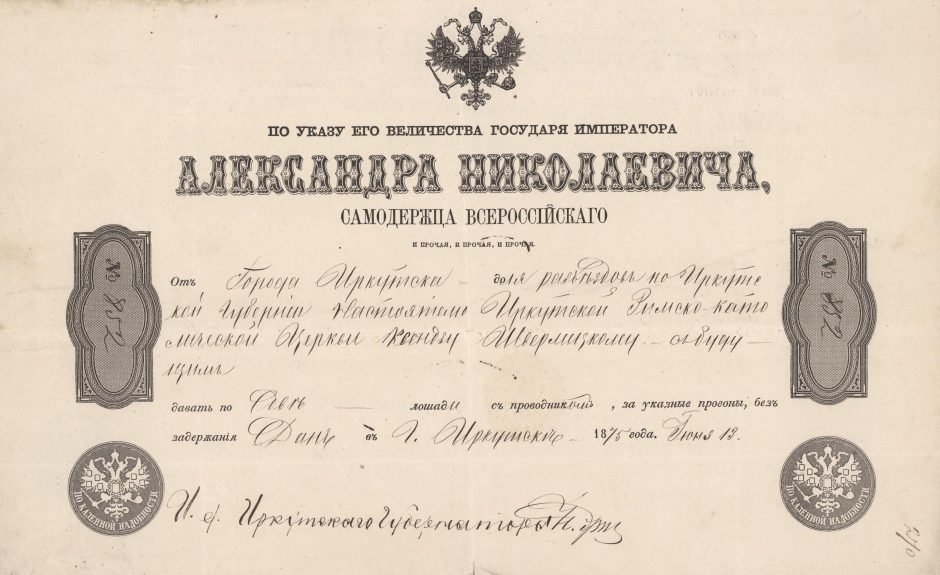 ПО УКАЗУ ЕГО ВЕЛИЧЕСТВА ГОСУДАРЯ ИМПЕРАТОРА
АЛЕКСАНДРА НИКОЛАЕВИЧА,
САМОДЕРЖЦА ВСЕРОССІЙСКАГО
И ПРОЧАЯ, И ПРОЧАЯ, И ПРОЧАЯ.
№ 852
№ 852
Отъ Города Иркутска — для разъѣздовъ по Иркутс
кой Губерніи Настоятелю Иркутской Римско-като
лической Церкви Ксендзу Швермицкому — съ буду
щимъ
давать по Двѣ — лошади съ проводникомъ, за указные прогоны, безъ
задержанія Данъ въ Г. Иркутскѣ — 1875 года. Іюня 12.
ПО КАЗЕННОЙ НАДОБНОСТИ
ПО КАЗЕННОЙ НАДОБНОСТИ
И. д. Иркутскаго Губернатора